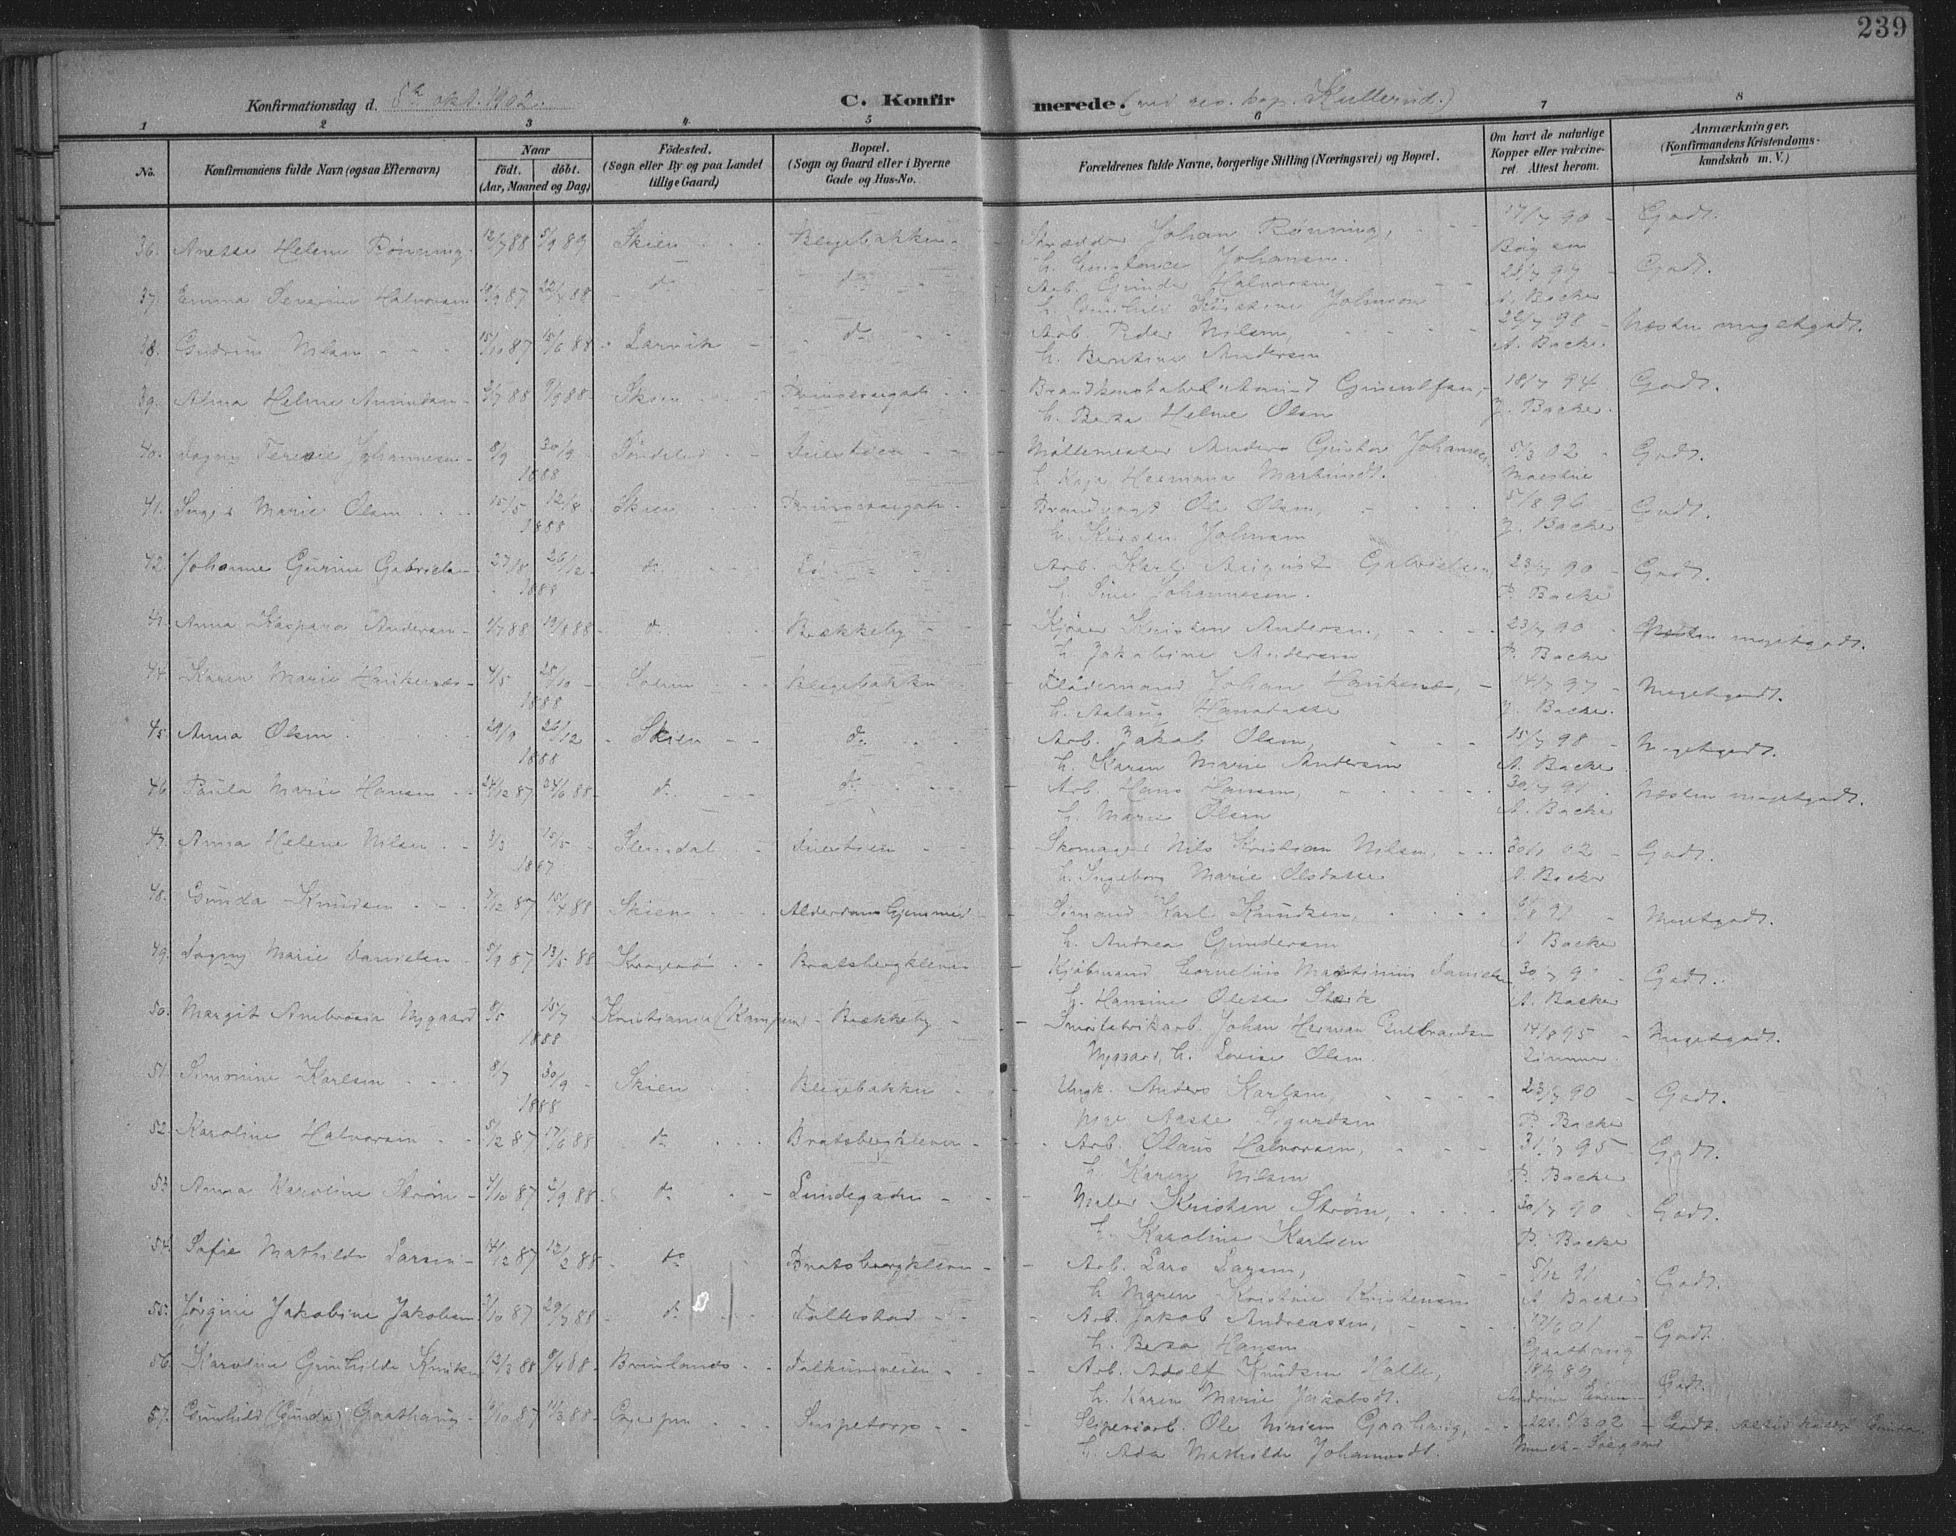 239
Konfirmationsdag d. 5te okt. 1902.
C. Konfirmerede. (ved res. kap. Kullerud.)
1 2 3 4 5 6 7 8
No. Konfirmandens fulde Navn (ogsaa Efternavn) Naar født. døbt. (Aar, Maaned og Dag) Fødested. (Sogn eller By og paa Landet tillige Gaard) Bopæl. (Sogn og Gaard eller i Byerne Gade og Hus-No. Forældrenes fulde Navne, borgerlige Stilling (Næringsvei) og Bopæl. Om havt de naturlige Kopper eller vaccineret. Attest herom. Anmærkninger. (Konfirmandens Kristendomskundskab m. V.)
36. Anette Helene Rønning 12/7 88 5/9 89 Skien Blegebakken Johan Rønning, 17/7 90 Godt.
Johansen
37. Emma Severine Halvorsen 9/9 87 22/4 88 do do Arb. Gunder Halvorsen 28/7 97 Godt.
Johnsen A. Backer
38. Gudrun Nilsen 15/10 87 15/6 88 Larvik do Arb. Peder Nilsen, 22/7 98 Næsten megetgodt.
h. Berntine Andersen A. Backer
39. Alma Helene Amundsen 2/7 88 9/9 88 Skien Prinsessegade Brandkonstabel 18/7 94 Godt.
h. Berta Helene Olsen J. Backer
40. Dagny Johannesen 8/9 30/9 Feiestøen Møllemester Anders Gustav Johannesen 5/3 02 Godt.
1888 h. Kaja Hermana
41. Inga Marie Olsen 15/5 12/8 Skien Prinsessegade Brandvagt Ole Olsen, 5/8 96 Godt.
1888 h. Kirsten Johnsen J. Backer
42. Johanne Gurine Gabrielsen 27/8 26/12 do Arb. Karl August Gabrielsen 23/7 90 Godt.
1888 h. Sine Johannesen. P. Backer
43. Anna Kaspara Andersen 1/7 88 19/8 88 do Bækkeby Kjører Kristen Andersen, 23/7 90 Næsten megetgodt.
h. Jakobine Andersen P. Backer
44. Karen Marie Haukenæs 4/5 28/10 Solum Blegebakken Flødermand Johan Haukenæs, 14/7 97 Megetgodt.
1888 h. Aslaug Hansdatter J. Backer
45. Anna Olsen 29/9 26/12 Skien do Arb. Jakob Olsen, 15/7 98 Megetgodt.
1888 h. Karen Marie Andersen A. Backer
46. Paula Marie Hansen 24/12 87 24/6 88 do do Arb. Hans Hansen, 30/7 91 Næsten megetgodt.
h. Marie Olsen A. Backer
47. Anna Helene Nilsen 3/3 15/5 Slemdal Feiestøen Skomager Nils Kristian Nilsen, 30/1 02 Godt.
1887 h. Ingeborg Marie Olsdatter A. Backer
48. Gunda Knudsen 7/12 87 15/4 88 Skien Alderdomshjemmet Sømand Karl Knudsen, 6/8 91 Megetgodt.
h. Andrea Gundersen A. Backer
49. Dagny Marie Danielsen 5/9 87 13/5 88 Kragerø Bratsbergkleven Kjøbmand Cornelius Martinius Danielsen 30/7 91 Godt.
h. Hansine Olette Stærk A. Backer
50. Margit Ambrosia Nygaard 8/5 15/7 Kristiania (Kampen) Bækkeby Johan Herman Gulbrandsen 14/8 95 Megetgodt.
1888 Nygaard, h. Lovise Olsen. Zimmer
51. Simonine Karlsen 8/7 30/9 Skien Blegebakken Ungk. Anders Karlsen, 23/7 90 Godt.
1888 Pige Aaste Sigurdsen P. Backer
52. Karoline Halvorsen 5/12 87 17/6 88 do Bratsbergkleven Arb. Olaus Halvorsen, 31/7 95 Godt.
h. Karen Nilsen P. Backer
53. Anna Karoline Strøm 4/10 87 2/9 88 do Lundegaden Maler Kristen Strøm, 30/7 90 Godt.
h. Karoline Karlsen P. Backer
54. Sofie Mathilde Larsen 14/12 87 12/2 88 do Bratsbergkleven Arb. Lars Larsen, 5/12 91 Godt.
h. Maren Kristine Kristensen A. Backer
55. Jørgine Jakobine Jakobsen 7/10 87 29/7 88 do Follestad Arb. Jakob Andreassen, 17/6 01 Godt.
h. Berta Hansen Gaathaug
56. Karoline Gunhilde Knutsen 12/3 88 8/4 88 Brunlanes Falkumveien Arb. Adolf Knudsen Halle, 18/7 89 Godt.
h. Karen Marie Jakobsdt.
57. Gunhild (Gunda) Gaathaug 9/10 87 11/3 88 Gjerpen Arb. Ole Gaathaug, 5/3 02 Godt.
h. Ada Mathilde Johannesdt. Munch-Søegaard